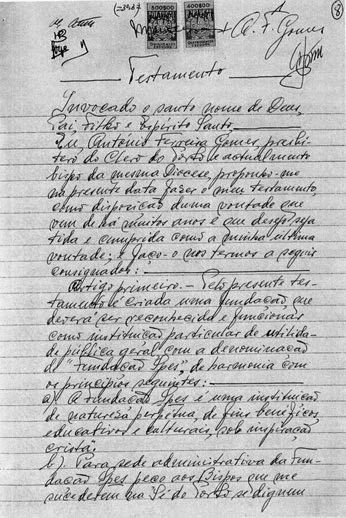 (-1987
A. F. Gomes
8
400$00 400$00
Testamento
Invocado o santo nome de Deus,
Pai, Filho e Espírito Santo.
Eu, Antonio Ferreira Gomes, presbi-
tero do Clero do Porto e actualmente
bispo da mesma Diocese, proponho-me
na presente data fazer o meu testamento,
como disposição duma vontade que
vem de há muitos anos e que desejo seja
tida e cumprida como a minha última
vontade; e faço-o nos termos a seguir
consignados:
Artigo primeiro. - Pelo presente tes-
tamento é criada uma fundação que
deverá ser reconhecida e funcionar
como instituição particular de utilida-
de pública geral com a denominação
de "Fundação Spes", de harmonia com
os princípios seguintes:
a) A Fundação Spes é uma instituição
de natureza perpétua, de fins benéficos
educativos e culturais, sob inspiração
cristã.
b) Para sede administrativa da Fun-
dação Spes peço aos Bispos que me
sucederem na Sé do Porto se dignem